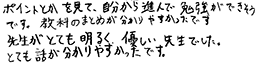 ポイントとか、を見て、自分から進んで勉強ができそう
です。教科のまとめが分かりやすかったです
先生がとても明るく、優しい先生でした。
とても話が分かりやすかったです。